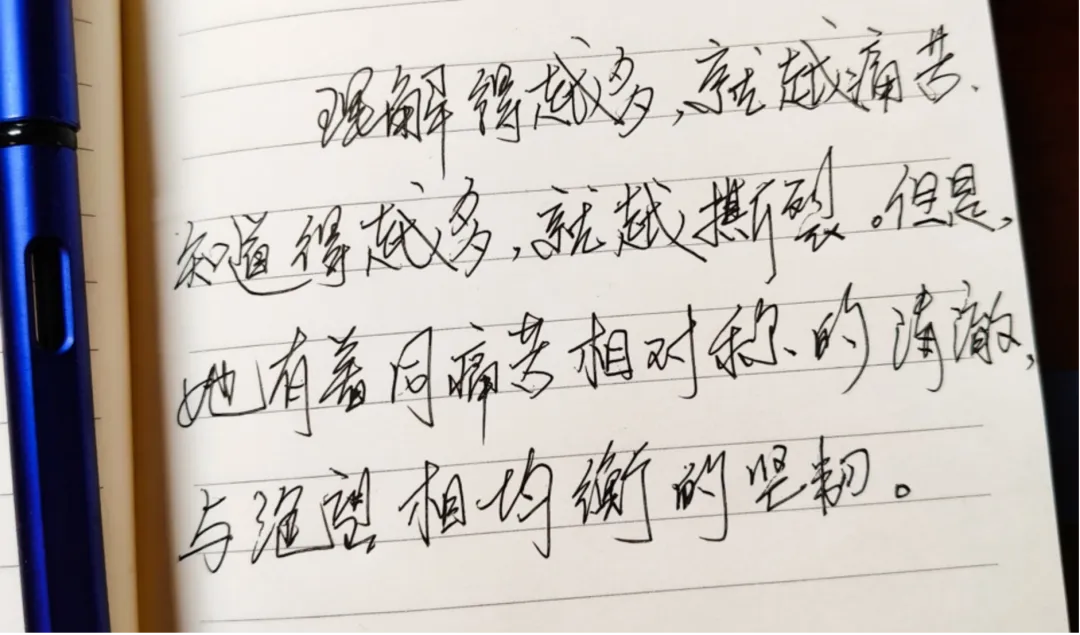 理解得越多,就越痛苦、
知道得越多,就越撕裂。但是,
她有着同痛苦相对称的清澈,
与绝望相均衡的坚韧。